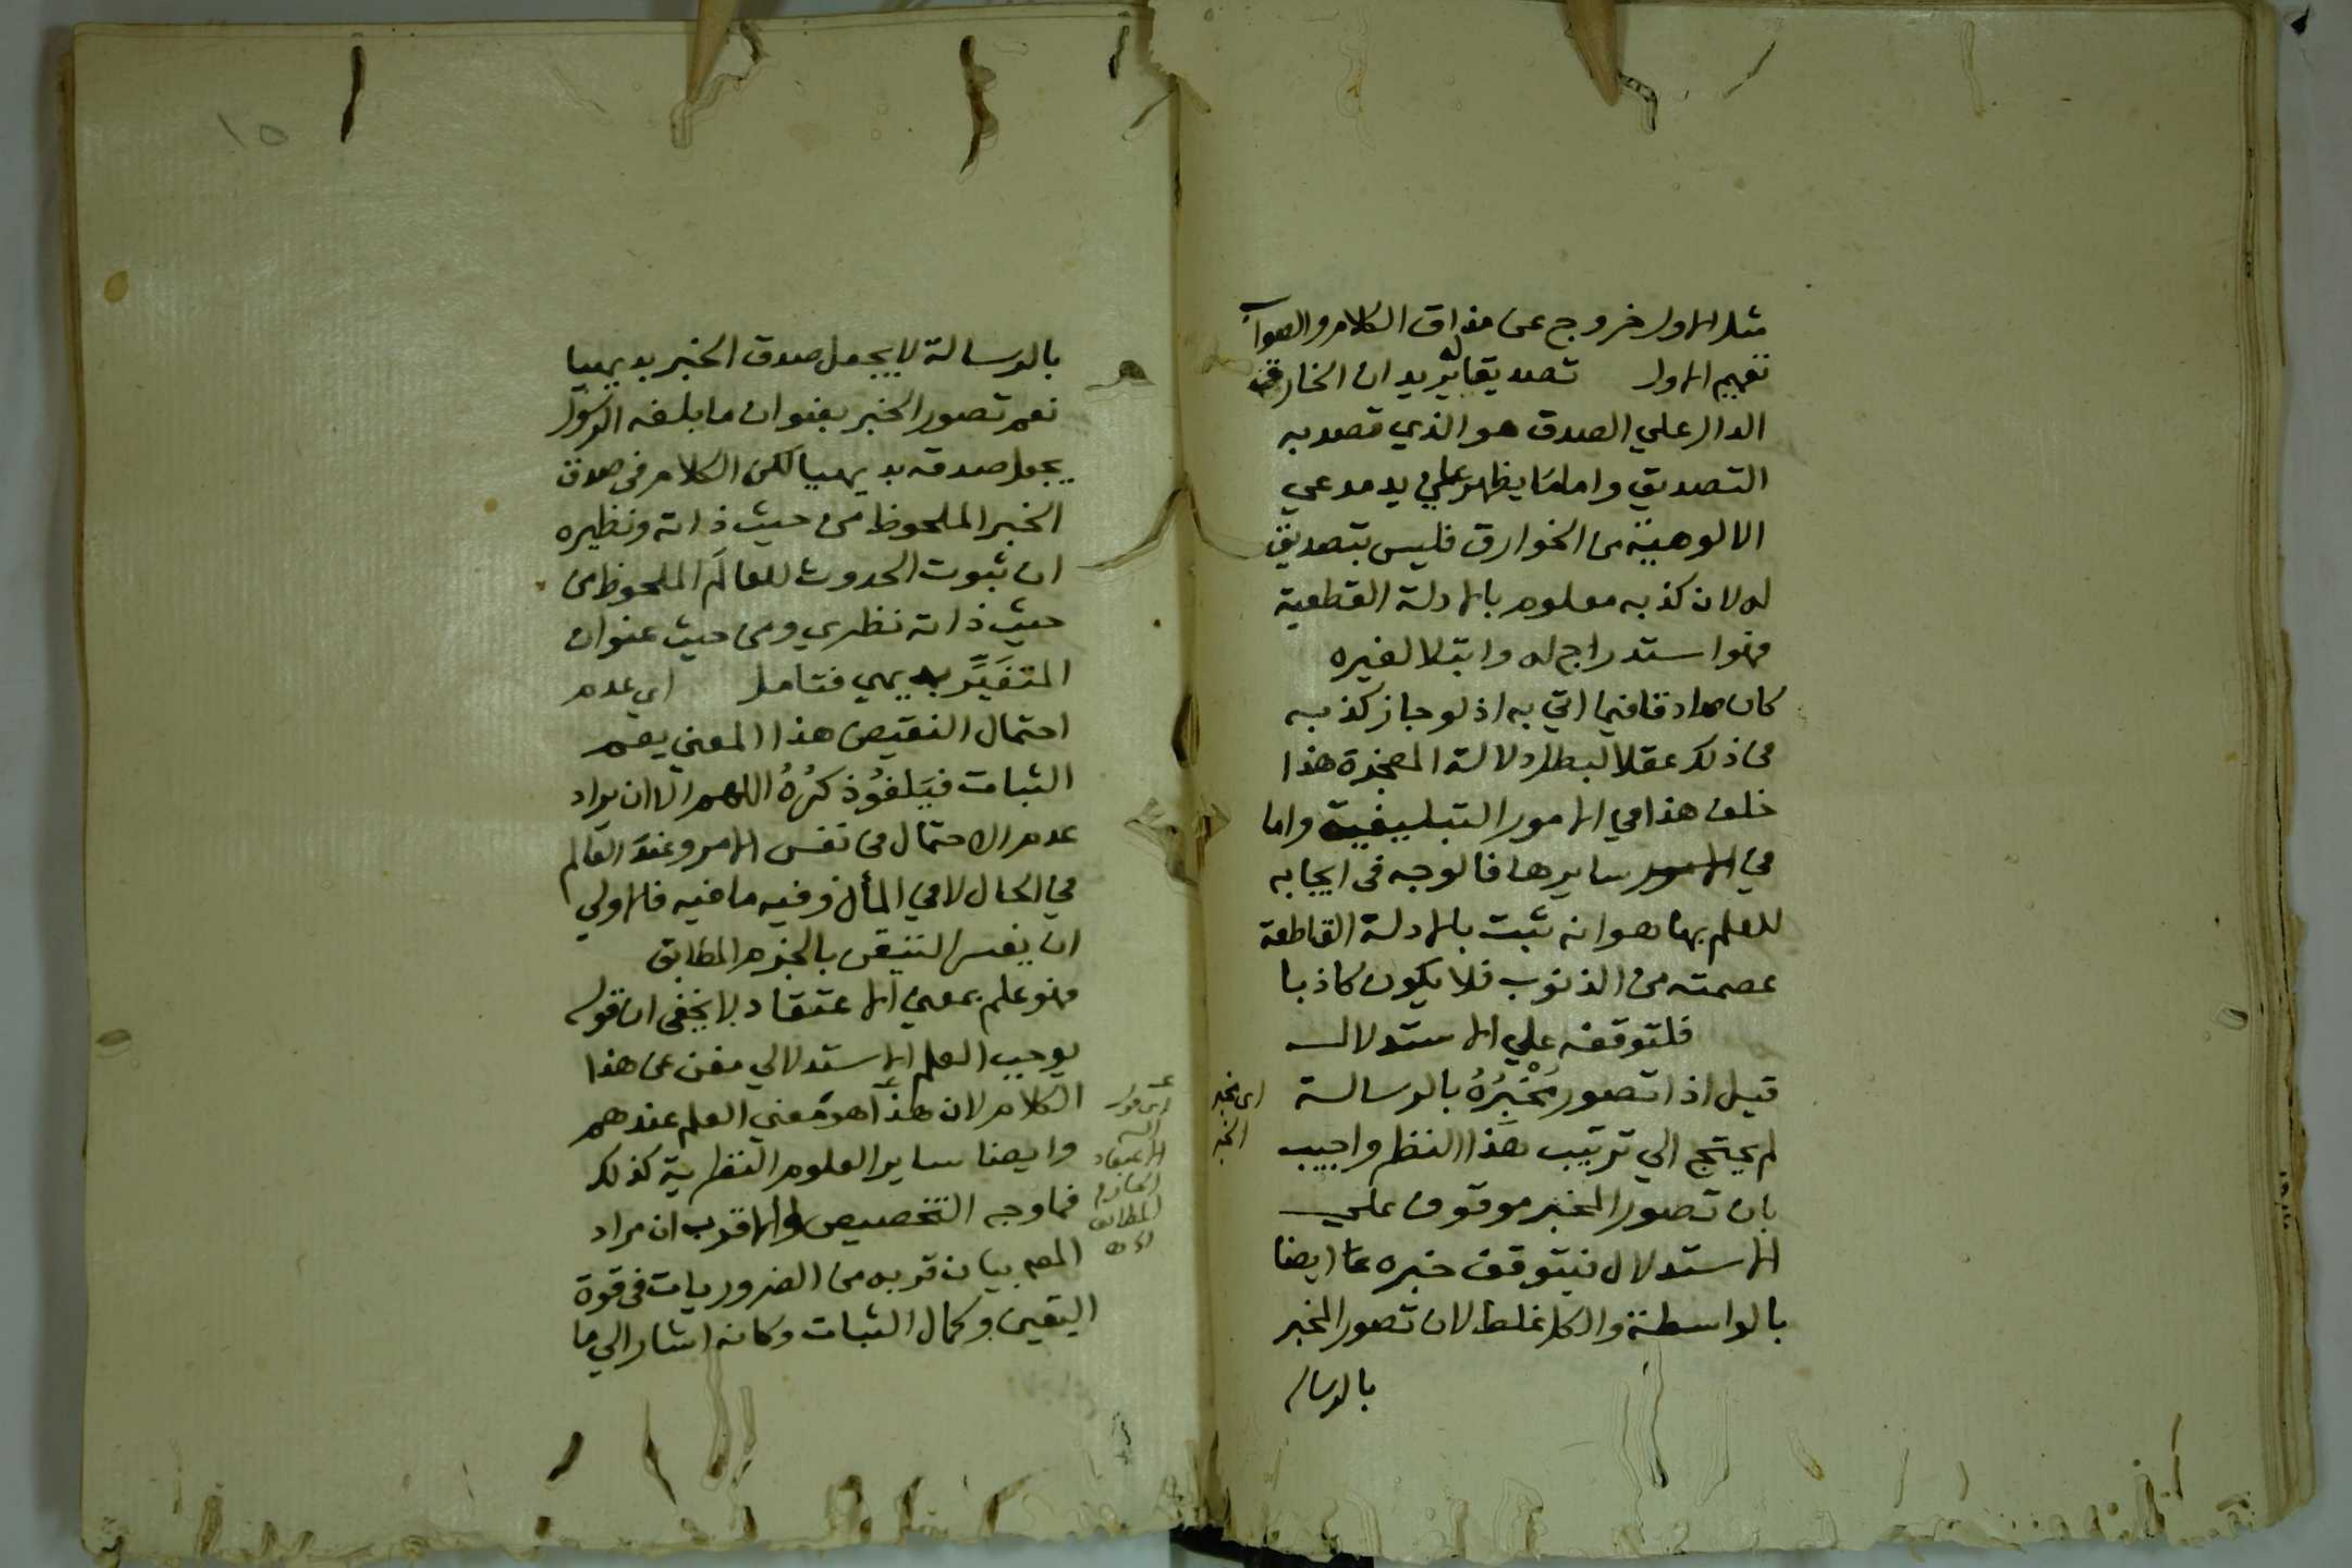 مثل الاول خروج عن مذاق الكلام والصواب
تعميم الاول تصديقا له يريد ان الخارق
الدال علي الصدق هو الذي قصد به
التصديق واما ما يظهر علي يد مدعي
الالوهية من الخوارق فليس بتصديق
له لان كذبه معلوم بالادلة القطعية
فهوا ستدراج له وابتلا لغيره
كان صادقا فيما اتي به اذ لو جاز كذبه
في ذلك عقلا لبطل دلالة المعجزة هذا
خلف هذا في الامور التبليغية واما
في سايرها فالوجه في ايجابه
للعلم بها هو انه ثبت بالادلة القاطعة
عصمته من الذنوب فلا يكون كاذبا
فلتوقفه علي الاستدلال
قيل اذا تصور مُخْبِرُهُ بالرسالة
لم يحتج الي ترتيب هذا النظم واجيب
بان تصور المخبر موقوف علي
الاستدلال فيتوقف خبره عا ايضا
بالواسطة والكل غلط لان تصور المخبر
بالرسالة
اي مخبر
الخبر
١٥
بالرسالة لا يجعل صدق الخبر بديهيا
نعم تصور الخبر بعنوان ما بلغه الرسول
يجعل صدقه بديهيا لكن الكلام في صدق
الخبر الملحوظ من حيث ذاته ونظيره
ان ثبوت الحدوث للعالَم الملحوظ من
حيث ذاته نظري ومن حيث عنوان
المتغَيِّر بديهي فتامل اي عدم
احتمال النقيض هذا المعني يعم
الثبات فيَلغوُ ذكرُهُ اللهم الا ان يراد
عدم الاحتمال في نفس الامر وعند العالم
في الحال لا في المأل وفيه ما فيه فالاولي
ان يفسر التيقن بالجزم المطابق
فهو علم بمعني الاعتقاد لا يخفي ان قوله
يوجب العلم الاستدلالي مغن عن هذا
الكلام لان هذا هو معني العلم عندهم
وايضا ساير العلوم النظرية كذلك
فما وجه التخصيص والاقرب ان مراد
المص بيان قربه من الضروريات في قوة
اليقين وكمال الثبات وكانه اشار الي ما
اي قوله
الاعتقاد
الجازم
المطابق